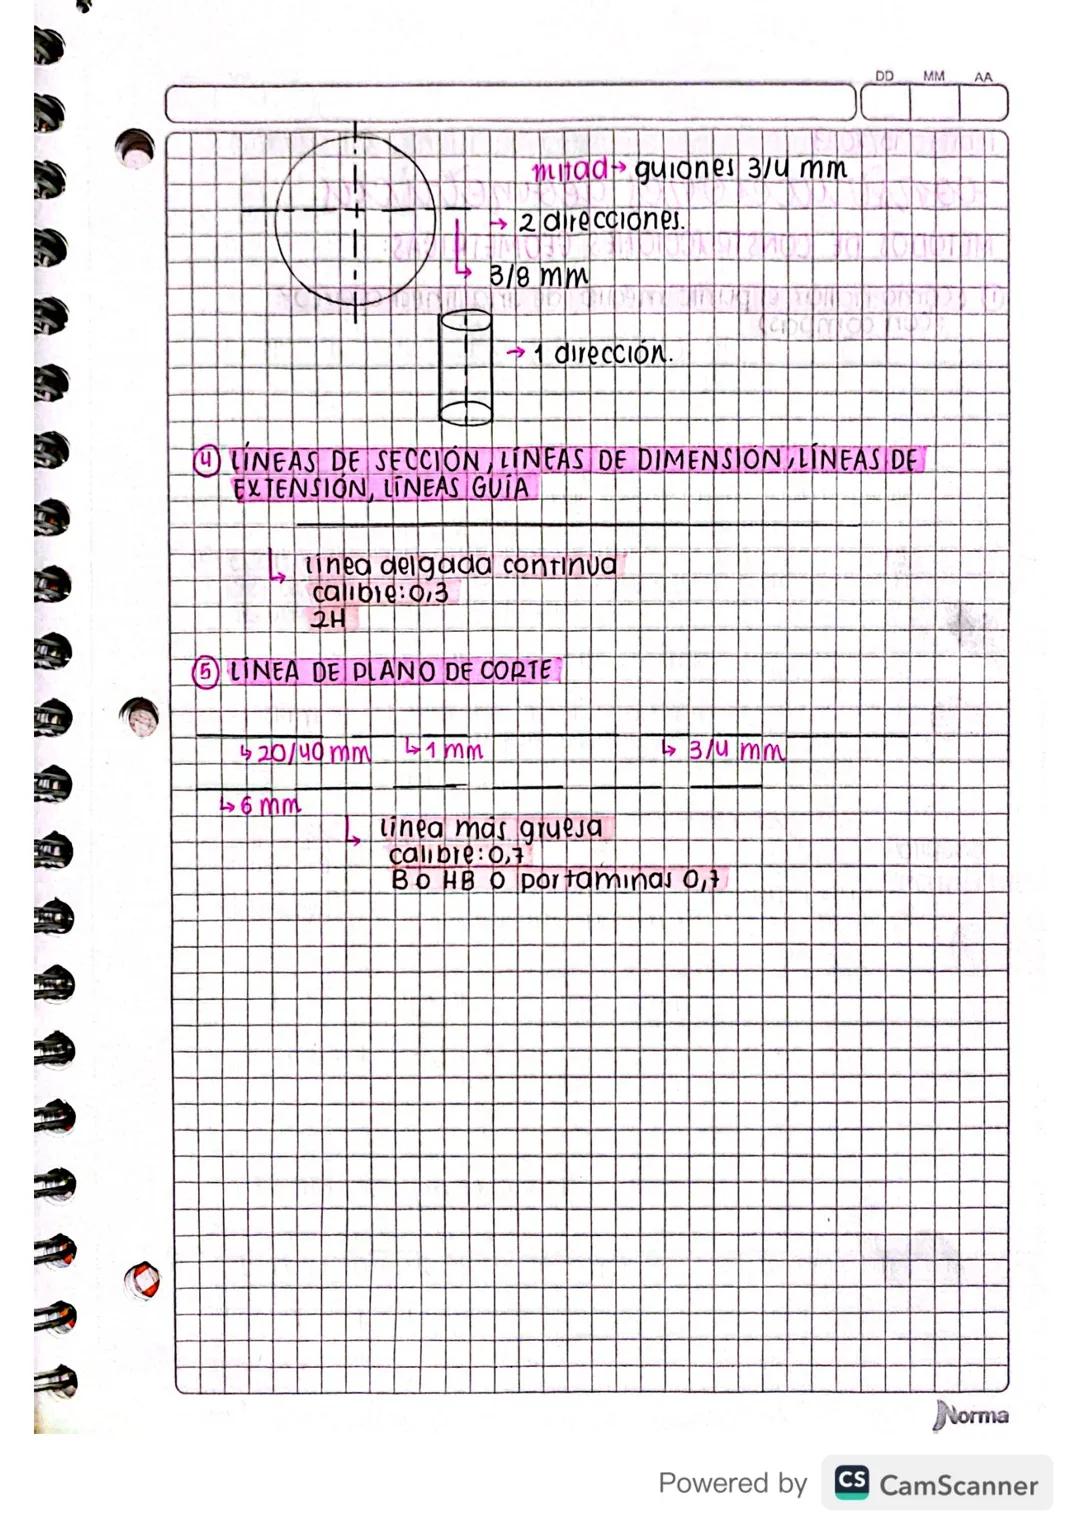 DD MM AA
mitad→ guiones 3/4 mm
→ 2 direcciones.
3/8 mm
→ 1 dirección.
④ LÍNEAS DE SECCIÓN, LÍNEAS DE DIMENSIÓN, LÍNEAS DE
EXTENSIÓN, LÍNEAS GUÍA
línea delgada continua
calibre: 0,3
2H
⑤ LÍNEA DE PLANO DE CORTE
↳ 20/40 mm ↳ 1 mm ↳ 3/4 mm
↳ 6 mm
línea más gruesa
calibre: 0,7
B o HB o portaminas 0,7
Norma
Powered by CS CamScanner